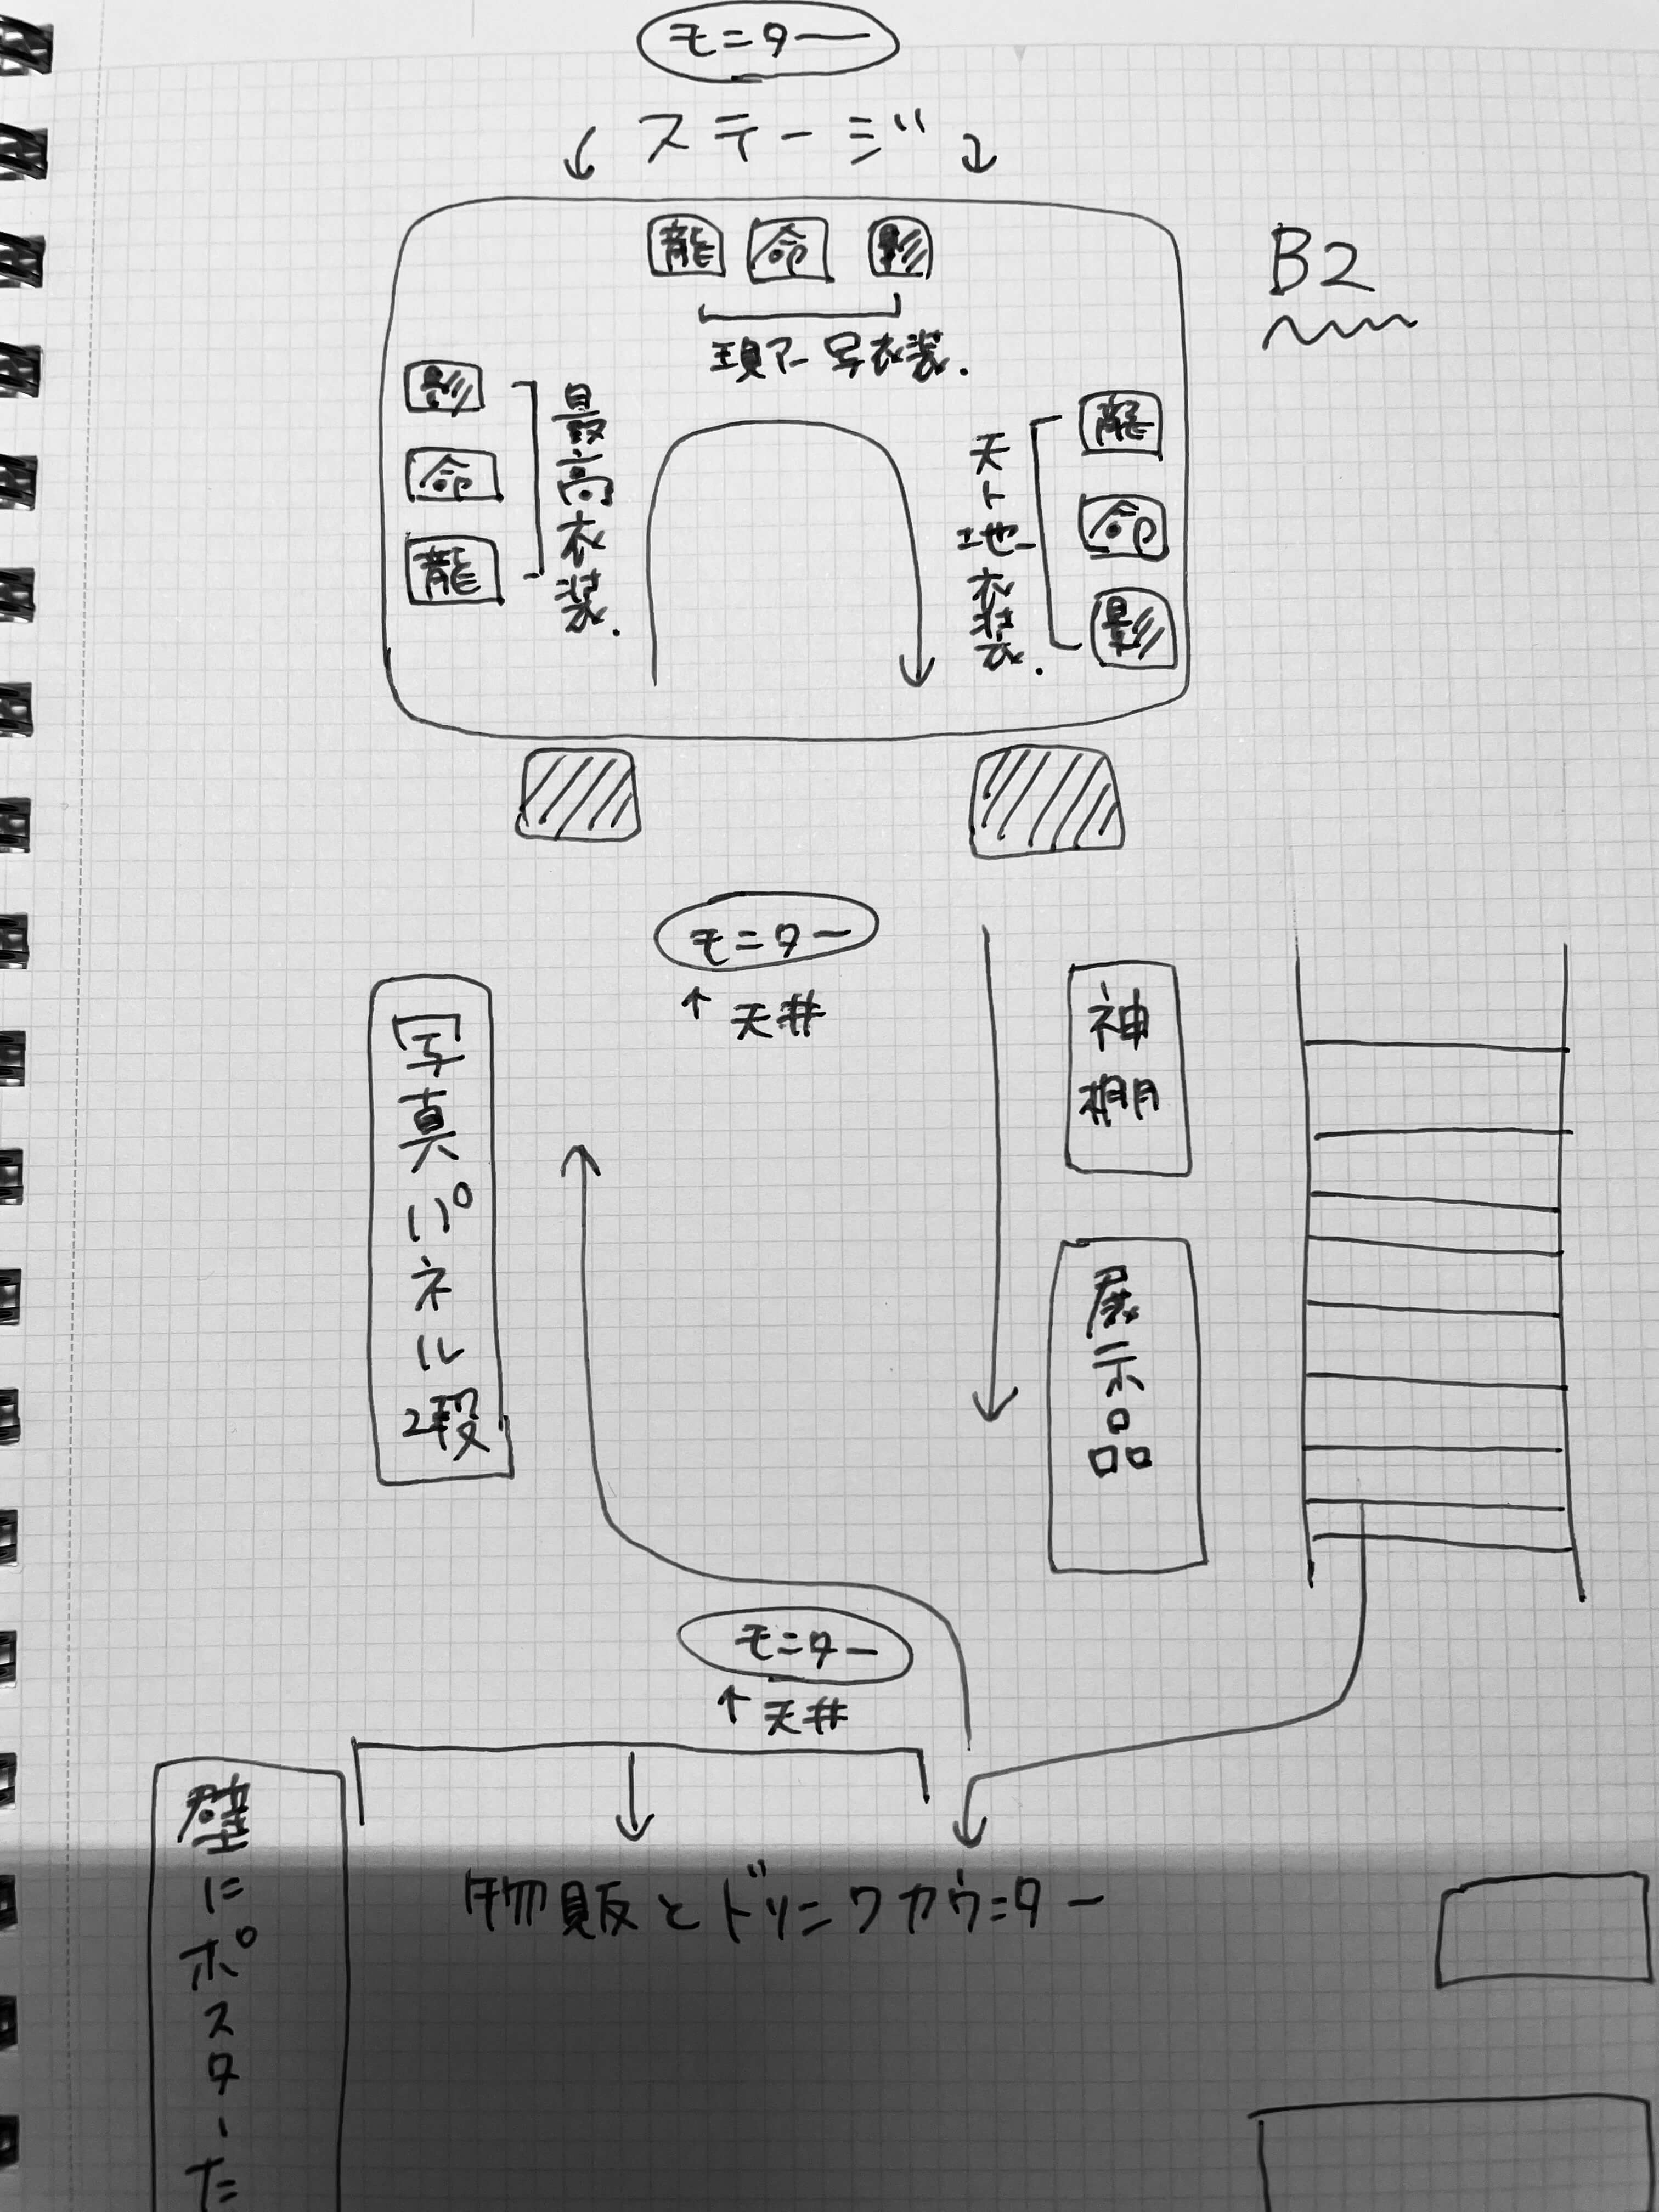 モニター
ステージ
龍 命 影
現アー写衣装.
B2
影
命
龍
最高衣装.
天ト地衣装.
龍
命
影
モニター
↑天井
写真パネル2段
神棚
展示品
モニター
↑天井
壁にポスターた
物販とドリンクカウンター